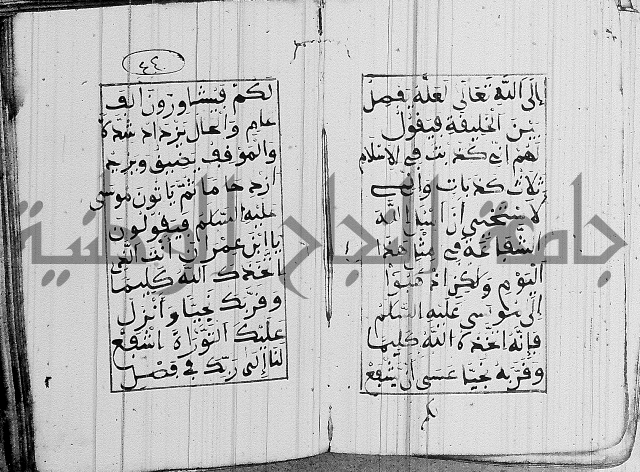 إلى الله تعالى لعله يفصل
بين الخليقة فيقول
لهم اني كذبت في الاسلام
ثلاث كذبات وانـي
لاستحيي ان اسال الله
الشفاعة في مثل هذا
اليوم ولكن اذهبوا
إلى موسى عليه السلام
فإنه اتخذه الله كليما
وقربه نجيا عسى ان يشفع
لكم
٤٤
لكم فيتشاورون ألف
عام والحال يزداد شدة
والموقف يضيق ويزدحم
ازدحاما ثم ياتون موسى
عليه السلام فيقولون
يا ابن عمران انت الذي
اتخذك الله كليما
وقربك نجيا وأنزل
عليك التوراة اشفع
لنا إلى ربك في فصل
جامعة النجاح الوطنية